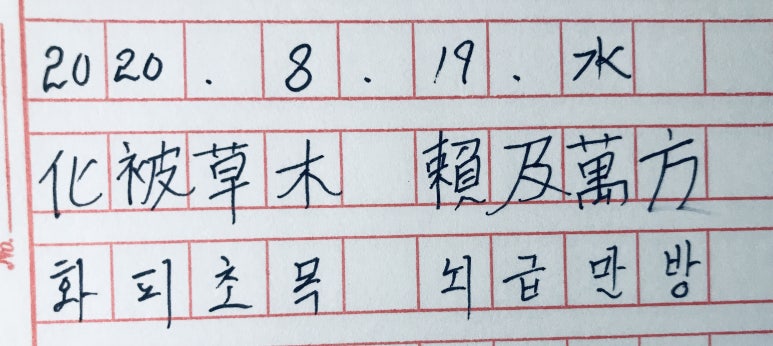 2020. 8. 19. 水
化被草木 賴及萬方
화피초목 뇌급만방
No.